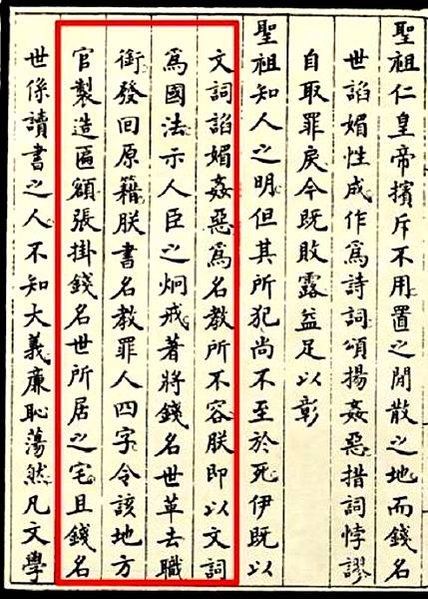 聖祖仁皇帝擯斥不用置之閒散之地而錢名
世諂媚性成作爲詩詞頌揚姦惡措詞悖謬
自取罪戾今既敗露益足以彰
聖祖知人之明但其所犯尚不至於死伊既以
文詞諂媚姦惡爲名教所不容朕即以文詞
爲國法示人臣之炯戒著將錢名世革去職
銜發回原籍朕書名教罪人四字令該地方
官製造匾額張掛錢名世所居之宅且錢名
世係讀書之人不知大義廉恥蕩然凡文學